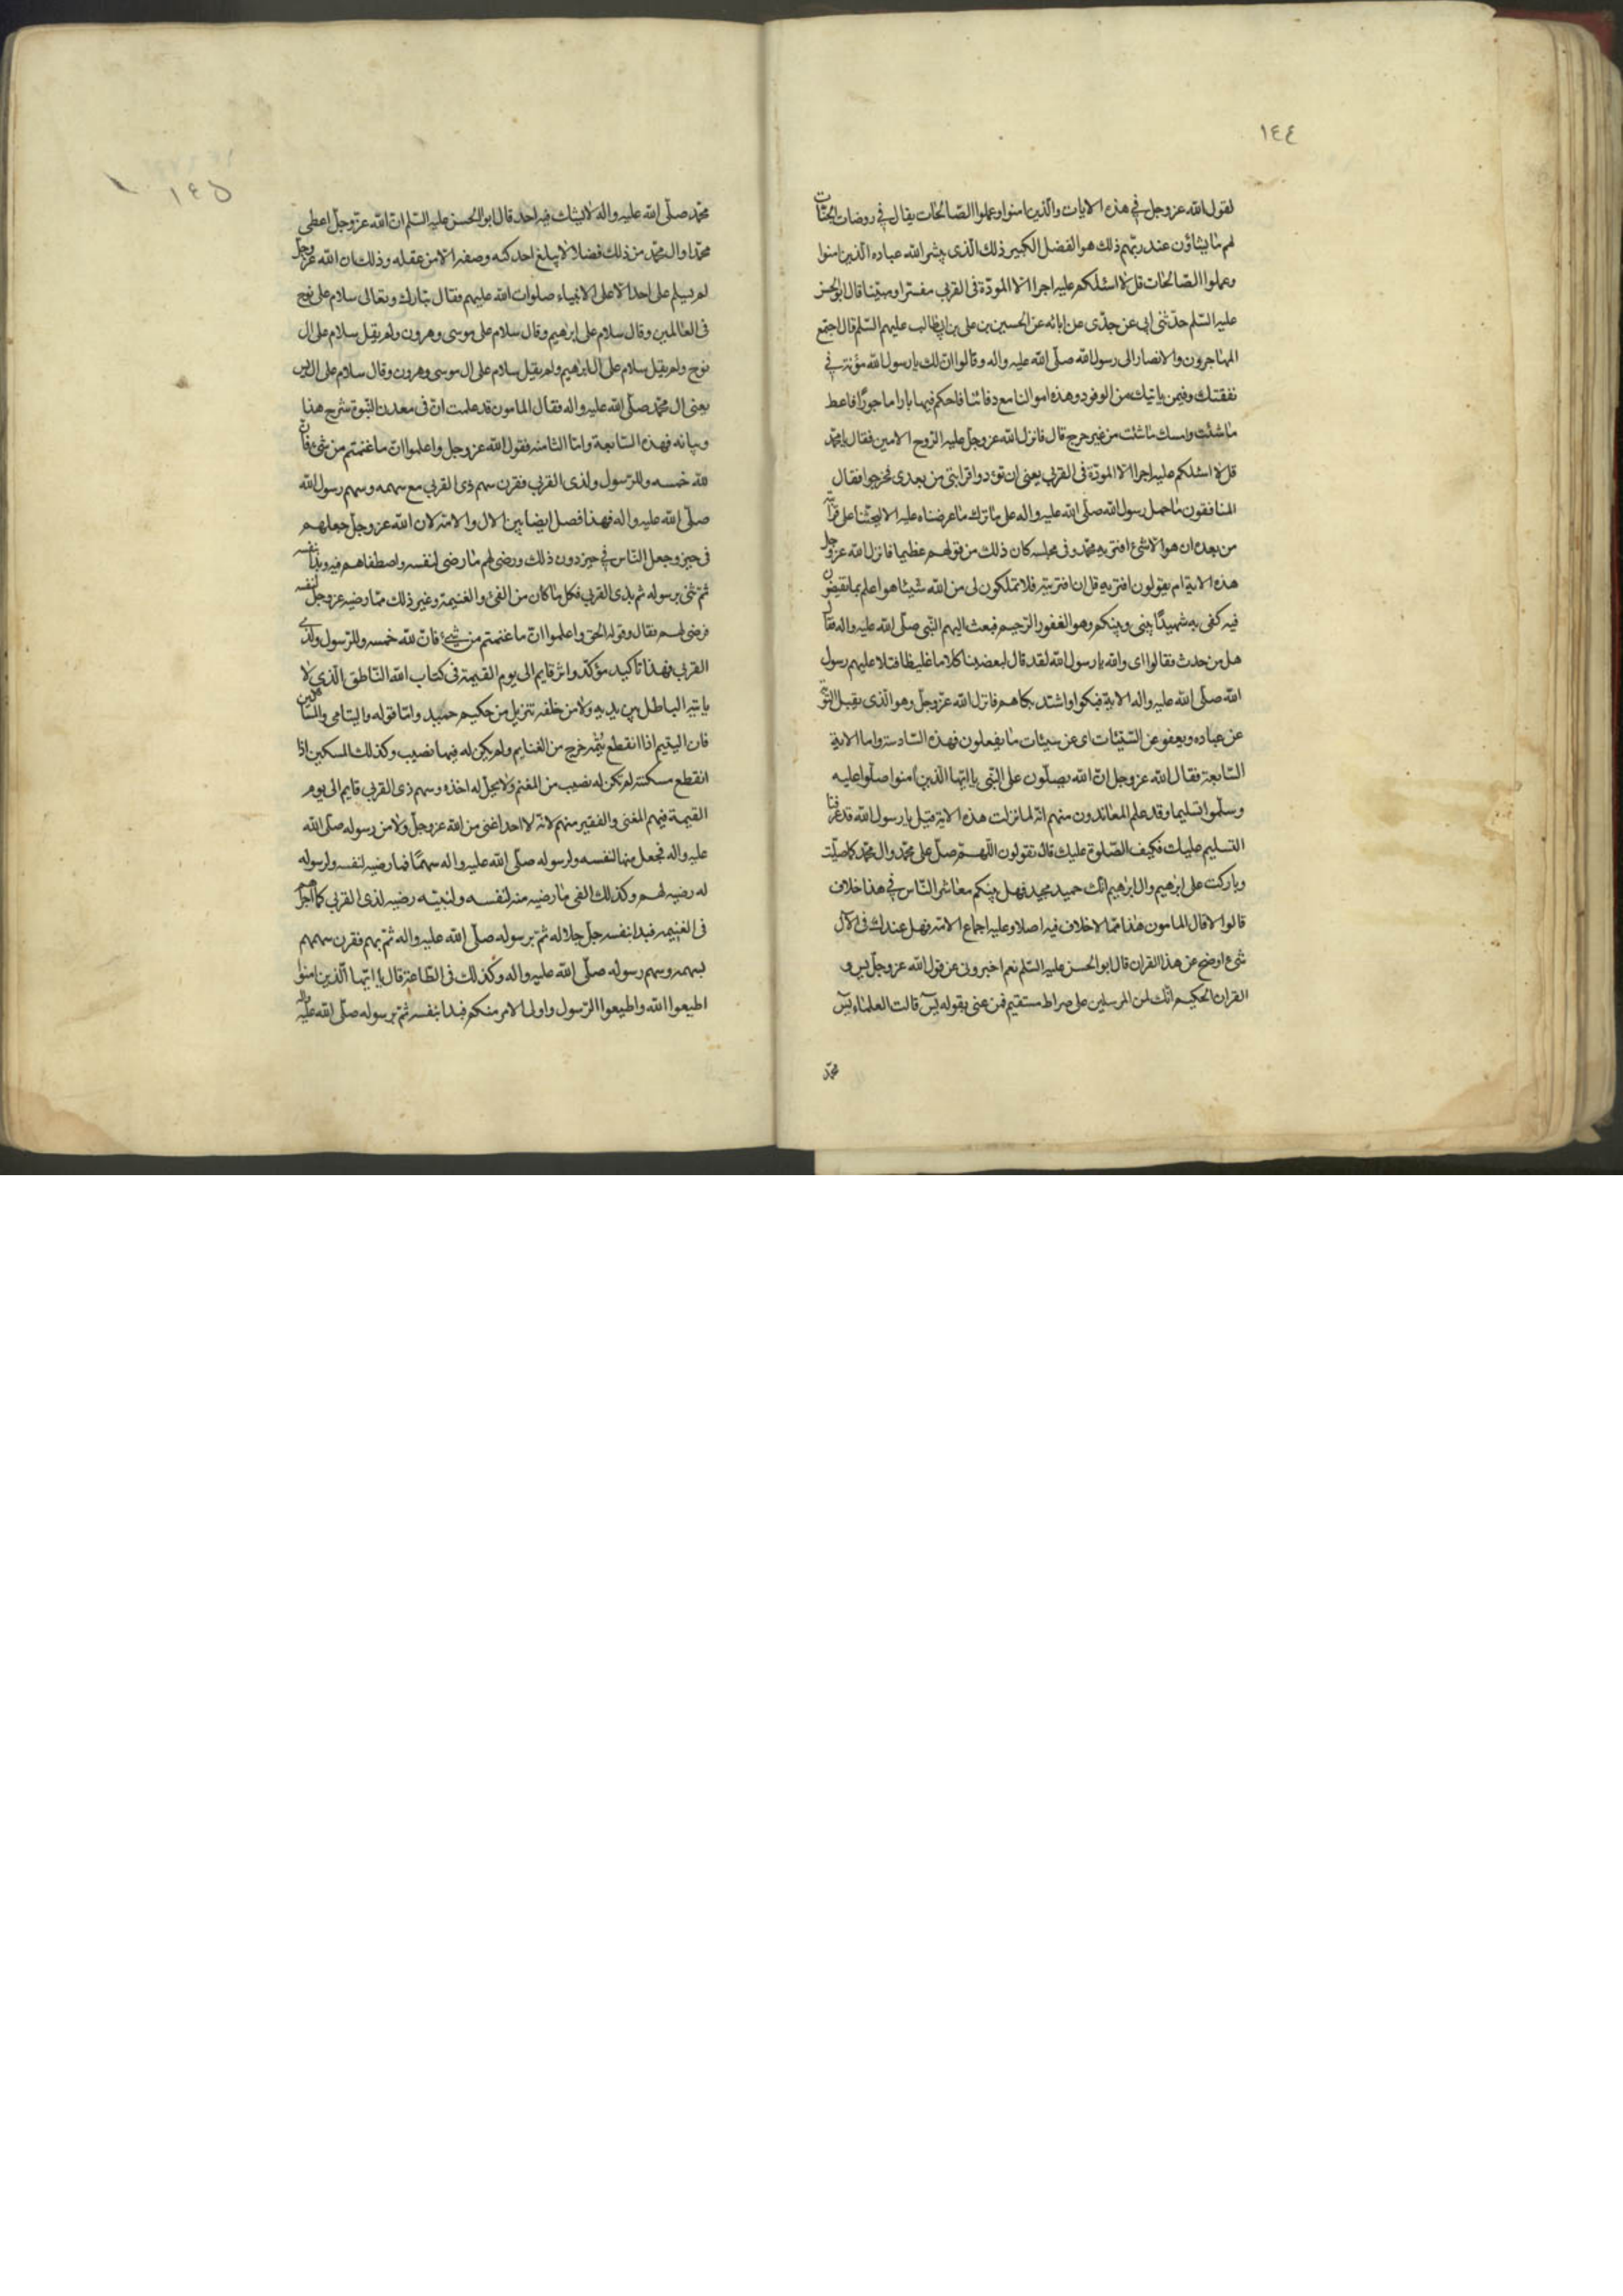 ١٤٤
لقول الله عز وجل في هذه الايات والذين امنوا وعملوا الصالحات يقال في روضات الجنات
لهم ما يشاؤن عند ربهم ذلك هو الفضل الكبير ذلك الذي يبشر الله عباده الذين امنوا
وعملوا الصالحات قل لا اسئلكم عليه اجرا الا المودة في القربى مفسرا ومبينا قال ابو الحسن
عليه السلم حدثني ابي عن جدي عن ابائه عن الحسين بن علي بن ابيطالب عليهم السلم قال اجتمع
المهاجرون والانصار الى رسول الله صلى الله عليه واله وقالوا ان لك يا رسول الله مؤنة في
نفقتك وفيمن ياتيك من الوفود وهذه اموالنا مع دمائنا فاحكم فيها بارا ماجورا فاعط
ما شئت وامسك ما شئت من غير حرج قال فانزل الله عز وجل عليه الروح الامين فقال يا محمد
قل لا اسئلكم عليه اجرا الا المودة في القربى يعني ان تودوا قرابتي من بعدي فخرجوا فقال
المنافقون ما حمل رسول الله صلى الله عليه واله على ما ترك ما عرضناه عليه الا ليحثنا على قرابته
من بعده ان هو الا شئ افتريه محمد وفي مجلسه كان ذلك من قولهم عظيما فانزل الله عز وجل
هذه الاية ام يقولون افتريه قل ان افتريته فلا تملكون لي من الله شيئا هو اعلم بما تفيضون
فيه كفى به شهيدا بيني وبينكم وهو الغفور الرحيم فبعث اليهم النبي صلى الله عليه واله فقال
هل من حدث فقالوا اي والله يا رسول الله لقد قال بعضنا كلاما غليظا فتلا عليهم رسول
الله صلى الله عليه واله الاية فبكوا واشتد بكاهم فانزل الله عز وجل وهو الذي يقبل التوبة
عن عباده ويعفو عن السيئات اي عن سيئات ما يفعلون فهذه السادسة واما الاية
السابعة فقال الله عز وجل ان الله يصلون على النبي يا ايها الذين امنوا صلوا عليه
وسلموا تسليما وقد علم المعاندون منهم انه لما نزلت هذه الاية قيل يا رسول الله قد عرفنا
التسليم عليك فكيف الصلوة عليك قال تقولون اللهم صل على محمد وال محمد كما صليت
وباركت على ابرهيم وال ابرهيم انك حميد مجيد فهل بينكم معاشر الناس في هذا خلاف
قالوا لا قال المامون هذا مما لا خلاف فيه اصلا وعليه اجماع الامة فهل عندك في الآل
شئ اوضح عن هذا القران قال ابو الحسن عليه السلم نعم اخبروني عن قول الله عز وجل يس و
القران الحكيم انك لمن المرسلين على صراط مستقيم فمن عنى بقوله يس قالت العلماء يس
محمد
١٤٥
محمد صلى الله عليه واله لا يشك فيه احد قال ابو الحسن عليه السلم ان الله عز وجل اعطى
محمدا وال محمد من ذلك فضلا لا يبلغ احد كنه وصفه الا من عقله وذلك ان الله عز وجل
لم يسلم على احد الا على الانبياء صلوات الله عليهم فقال تبارك وتعالى سلام على نوح
في العالمين وقال سلام على ابرهيم وقال سلام على موسى وهرون ولم يقل سلام على ال
نوح ولم يقل سلام على ال ابرهيم ولم يقل سلام على ال موسى وهرون وقال سلام على ال يس
يعني ال محمد صلى الله عليه واله فقال المامون قد علمت ان في معدن النبوة شرح هذا
وبيانه فهذه السابعة واما الثامنه فقول الله عز وجل واعلموا ان ما غنمتم من شئ فان
لله خمسه وللرسول ولذي القربى فقرن سهم ذي القربى مع سهمه وسهم رسول الله
صلى الله عليه واله فهذا فصل ايضا بين الال والامة لان الله عز وجل جعلهم
في حيز وجعل الناس في حيز دون ذلك ورضي لهم ما رضي لنفسه واصطفاهم فيه وبدأ بنفسه
ثم ثنى برسوله ثم بذي القربى فكل ما كان من الفئ والغنيمة وغير ذلك مما رضيه عز وجل لنفسه
فرضي لهم فقال وقوله الحق واعلموا ان ما غنمتم من شئ فان لله خمسه وللرسول ولذي
القربى فهذا تاكيد مؤكد واثر قايم الى يوم القيمة في كتاب الله الناطق الذي لا
ياتيه الباطل من بين يديه ولا من خلفه تنزيل من حكيم حميد واما قوله واليتامى والمساكين
فان اليتيم اذا انقطع يتمه خرج من الغنايم ولم يكن له فيها نصيب وكذلك المسكين اذا
انقطع مسكنته لم تكن له نصيب من المغنم ولا يحل له اخذه وسهم ذي القربى قايم الى يوم
القيمة فيهم المغني والفقير منهم لانه لا احد اغنى من الله عز وجل ولا من رسوله صلى الله
عليه واله فجعل منها لنفسه ولرسوله صلى الله عليه واله سهما فما رضيه لنفسه ولرسوله
له رضيه لهم وكذلك الفي ما رضيه منه لنفسه ولنبيه رضيه لذي القربى كما اجراهم
في الغنيمه فبدا بنفسه جل جلاله ثم برسوله صلى الله عليه واله ثم بهم فقرن سهمهم
بسهمه وسهم رسوله صلى الله عليه واله وكذلك في الطاعة قال يا ايها الذين امنوا
اطيعوا الله واطيعوا الرسول واولي الامر منكم فبدا بنفسه ثم برسوله صلى الله عليه واله